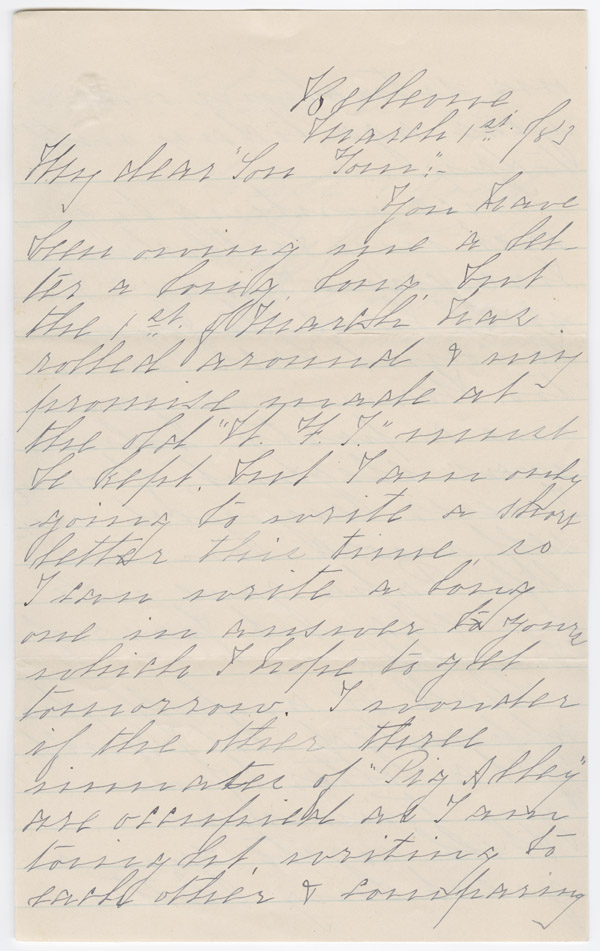 Bellevue,
March 1st. /83
My dear "Son Tom":-
You have
been owing me a let-
ter a long, long, but
the 1st. of March has
rolled around & my
promise made at
the old "W. F. I." must
be kept. but I am only
going to write a short
letter this time, so
I can write a long
one in answer to yours
which I hope to get
tomorrow. I wonder
if the other three
inmates of "Pig Alley"
are occupied as I am
tonight, writing to
each other & comparing